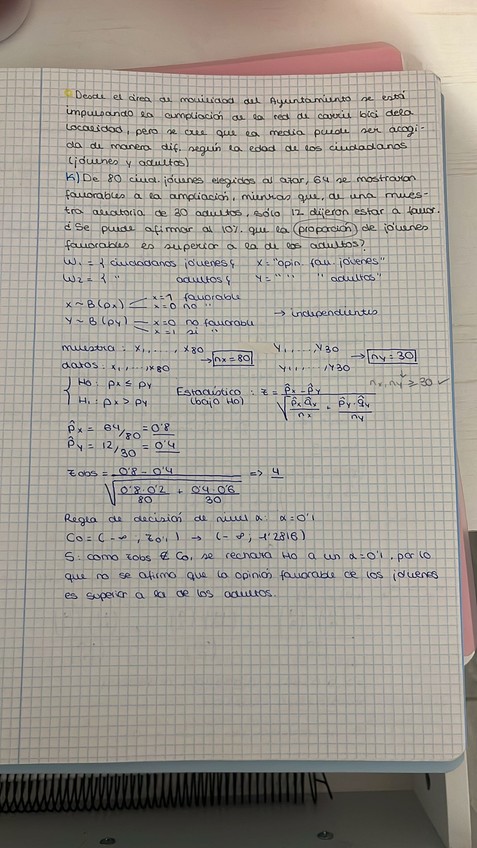 Desde el área de movilidad del Ayuntamiento se está
impulsando la ampliación de la red de carril bici dela
localidad, pero se cree que la media puede ser acogi-
da de manera dif. según la edad de los ciudadanos
(jóvenes y adultos)
K) De 80 ciud. jóvenes elegidos al azar, 64 se mostraron
favorables a la ampliación, mientras que, de una mues-
tra aleatoria de 30 adultos, sólo 12 dijeron estar a favor.
¿Se puede afirmar al 10%. que la (proporción) de jóvenes
favorables es superior a la de los adultos?
W1 = { ciudadanos jóvenes} X = "opin. fav. jóvenes"
W2 = { " adultos} Y = " " " adultos"
X ~ B(px) x=1 favorable
x=0 no "
→ independientes
Y ~ B(py) x=0 no favorable
x=1 si "
muestra: X1, ..., X80 → nx = 80 Y1, ..., Y30 → ny = 30
datos: x1, ..., x80 Y1, ..., Y30
nx, ny ≥ 30 ✓
H0: px ≤ py
H1: px > py
Estadístico (bajo H0): Z = p̂x - p̂y / √(p̂x·q̂x/nx + p̂y·q̂y/ny)
p̂x = 64/80 = 0'8
p̂y = 12/30 = 0'4
Zobs = 0'8 - 0'4 / √(0'8·0'2/80 + 0'4·0'6/30) => 4
Regla de decisión de nivel α: α=0'1
C0 = (-∞, Z0,1) → (-∞, 1'2816)
S: como Zobs ∉ C0, se rechaza H0 a un α=0'1, por lo
que no se afirma que la opinión favorable de los jóvenes
es superior a la de los adultos.